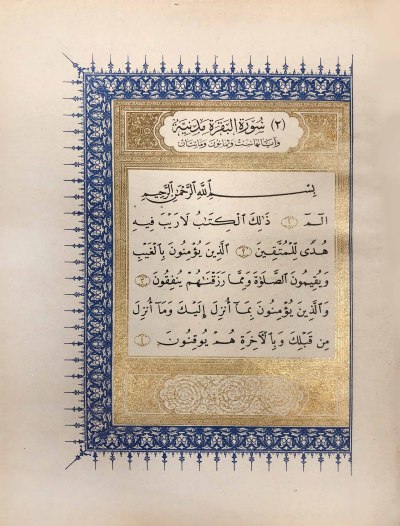 (٢) سُورَةُ الْبَقَرَةِ مَدَنِيَّة
وَآيَاتُهَا سِتّ وَثَمَانُونَ وَمِائَتَان
بِسْمِ اللَّهِ الرَّحْمَٰنِ الرَّحِيمِ
الٓمٓ ١ ذَٰلِكَ الْكِتَابُ لَا رَيْبَ فِيهِ
هُدًى لِلْمُتَّقِينَ ٢ الَّذِينَ يُؤْمِنُونَ بِالْغَيْبِ
وَيُقِيمُونَ الصَّلَوٰةَ وَمِمَّا رَزَقْنَاهُمْ يُنْفِقُونَ ٣
وَالَّذِينَ يُؤْمِنُونَ بِمَا أُنْزِلَ إِلَيْكَ وَمَا أُنْزِلَ
مِنْ قَبْلِكَ وَبِالْآخِرَةِ هُمْ يُوقِنُونَ ٤